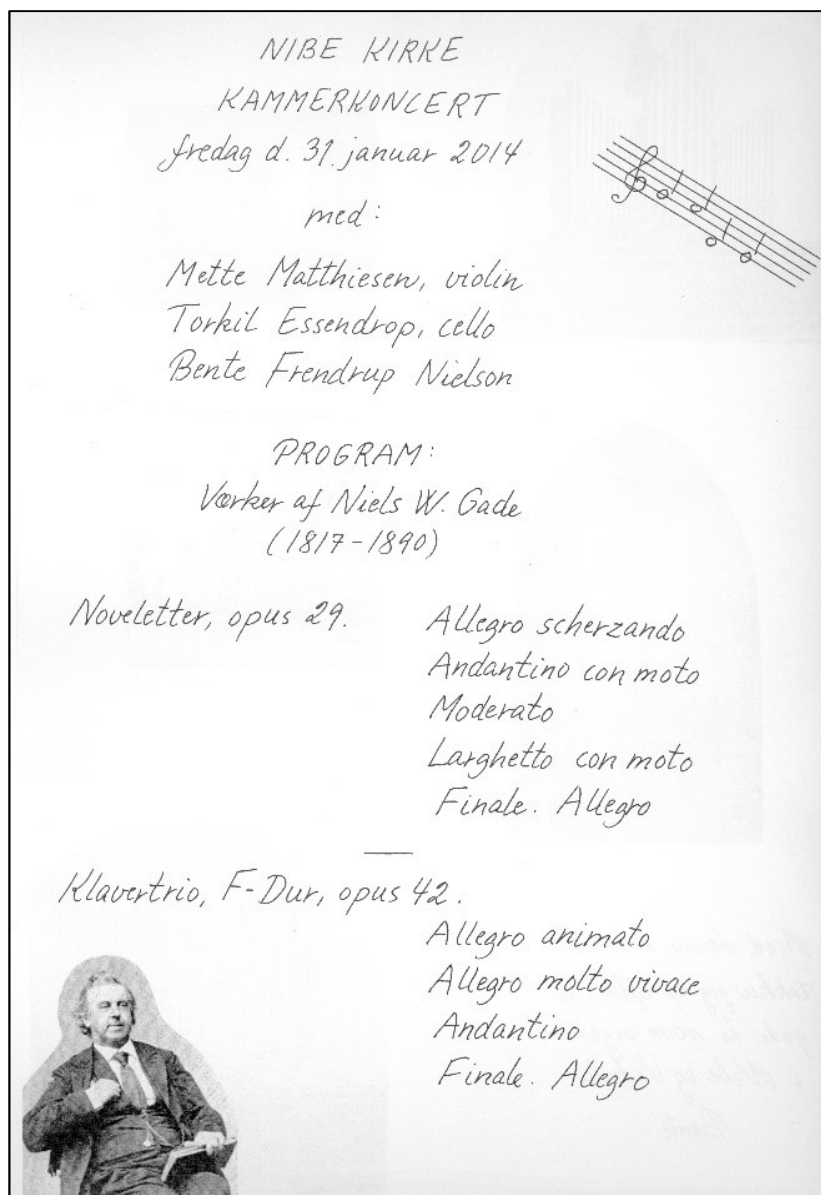 NIBE KIRKE
KAMMERKONCERT
fredag d. 31. januar 2014
med:
Mette Matthiesen, violin
Torkil Essendrop, cello
Bente Frendrup Nielson
PROGRAM:
Værker af Niels W. Gade
(1817-1890)
Noveletter, opus 29. Allegro scherzando
Andantino con moto
Moderato
Larghetto con moto
Finale. Allegro
Klavertrio, F-Dur, opus 42.
Allegro animato
Allegro molto vivace
Andantino
Finale. Allegro